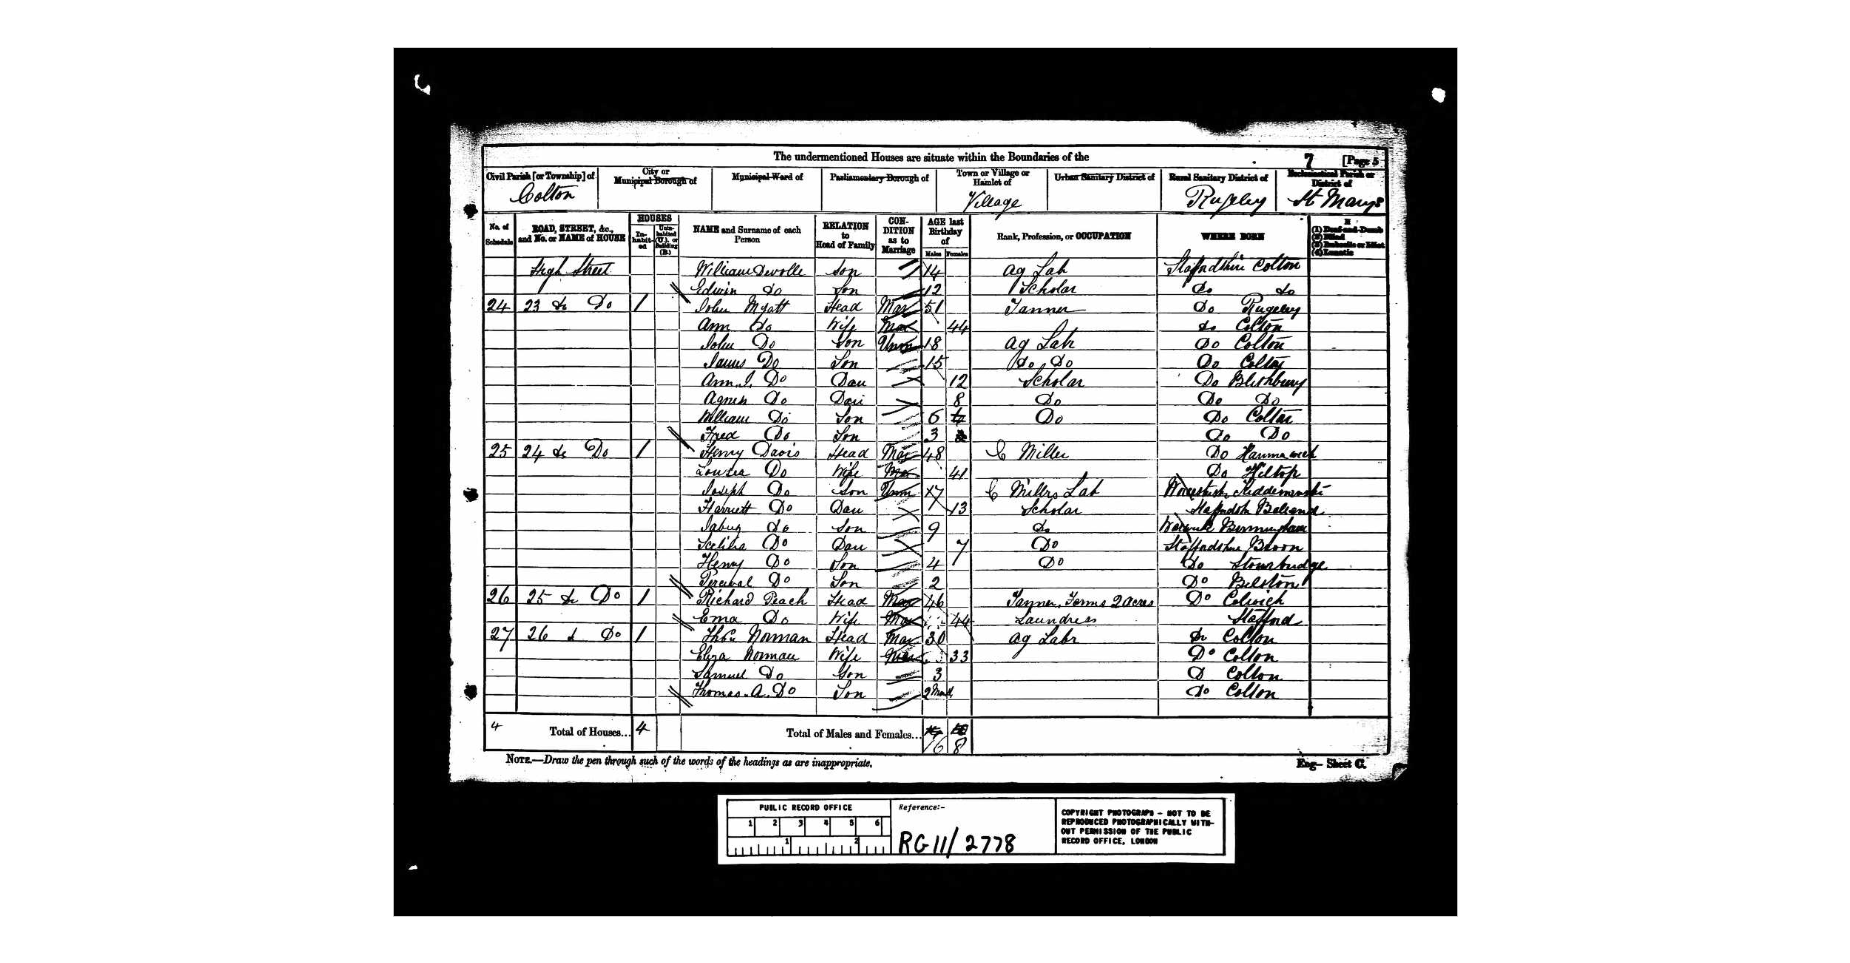 The undermentioned Houses are situate within the Boundaries of the 7 [Page 5
Civil Parish [or Township] of City or Municipal Borough of Municipal Ward of Parliamentary Borough of Town or Village or Hamlet of Urban Sanitary District of Rural Sanitary District of Ecclesiastical Parish or District of
Colton Village Rugeley St Marys
No. of Schedule ROAD, STREET, &c., and No. or NAME of HOUSE HOUSES Inhabited Uninhabited (U.), or Building (B.) NAME and Surname of each Person RELATION to Head of Family CONDITION as to Marriage AGE last Birthday of Males Females Rank, Profession, or OCCUPATION WHERE BORN (1) Deaf-and-Dumb (2) Blind (3) Imbecile or Idiot (4) Lunatic
High Street William Devolle Son 14 Ag Lab Staffordshire Colton
Edwin Do Son 12 Scholar Do do
24 23 do Do 1 John Myatt Head Mar 51 Tanner Do Rugeley
Ann do Wife Mar 44 do Colton
John Do Son Unm 18 Ag Lab Do Colton
James Do Son 15 Do Do Do Colton
Ann. J. Do Dau 12 Scholar Do Blithbury
Agnes Do Dau 8 Do Do Do
William Do Son 6 Do Do Colton
Fred Do Son 3 Do Do
25 24 do Do 1 Henry Davis Head Mar 48 C Miller Do
Louisa Do Wife Mar 41 Do Hiltop
Joseph Do Son Unm 17 C Millers Lab
Harriett Do Dau 13 Scholar
do Son 9 do Warwick Birmingham
Do Dau 7 Do Staffordshire
Henry Do Son 4 Do Do Stourbridge
Percival Do Son 2 Do Bilston
26 25 do Do 1 Richard Peach Head Mar 46 Tanner, Farms 2 acres Do Colwich
Ema Do Wife Mar 44 Laundress Stafford
27 26 d Do 1 Thos Norman Head Mar 30 Ag Labr do Colton
Eliza Norman Wife Mar 33 Do Colton
Samuel Do Son 3 D Colton
Thomas. A. Do Son 2 Do Colton
4 Total of Houses... 4 Total of Males and Females... 16 8
NOTE.—Draw the pen through such of the words of the headings as are inappropriate. Eng— Sheet C.
PUBLIC RECORD OFFICE
1 2 3 4 5 6
1 2
Reference:-
RG 11/2778
COPYRIGHT PHOTOGRAPH - NOT TO BE
REPRODUCED PHOTOGRAPHICALLY WITH-
OUT PERMISSION OF THE PUBLIC
RECORD OFFICE, LONDON